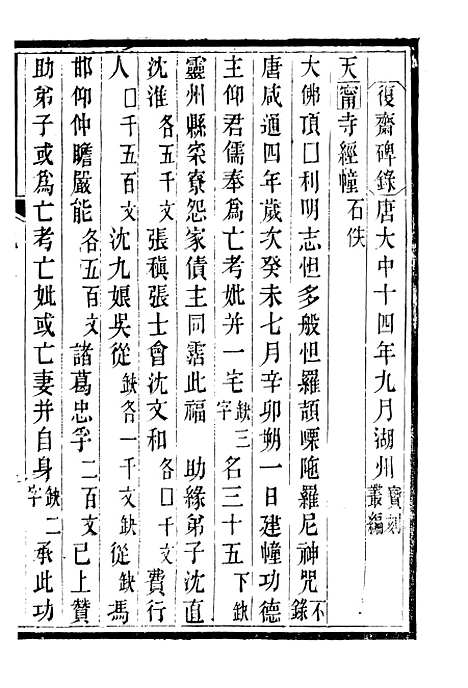 復齋碑錄唐大中十四年九月湖州寶刻叢編
天甯寺經幢石佚
大佛頂囗利明志怛多般怛羅頡㗚陁羅尼神咒不錄
唐咸通四年歲次癸未七月辛卯朔一日建幢功德
主仰君儒奉爲亡考妣并一宅缺三字名三十五下缺
靈州縣寀寮怨家債主同霑此福　助緣弟子沈直
沈淮各五千文張稹張士會沈文和各囗千文費行
人囗千五百文沈九娘吳從缺各一千文缺從缺馮
邯仰仲瞻嚴能各五百文諸葛忠孚二百文已上贊
助弟子或爲亡考亡妣或亡妻并自身缺二字承此功